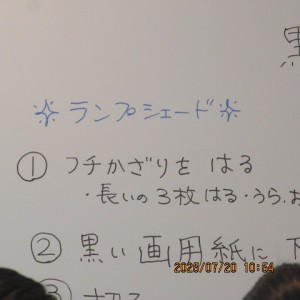 黒
☼ ランプシェード ☼
① フチかざりを はる
・長いの3枚はる・うら、お
② 黒い画用紙に 下
③ 切る
2025/07/20 10:54